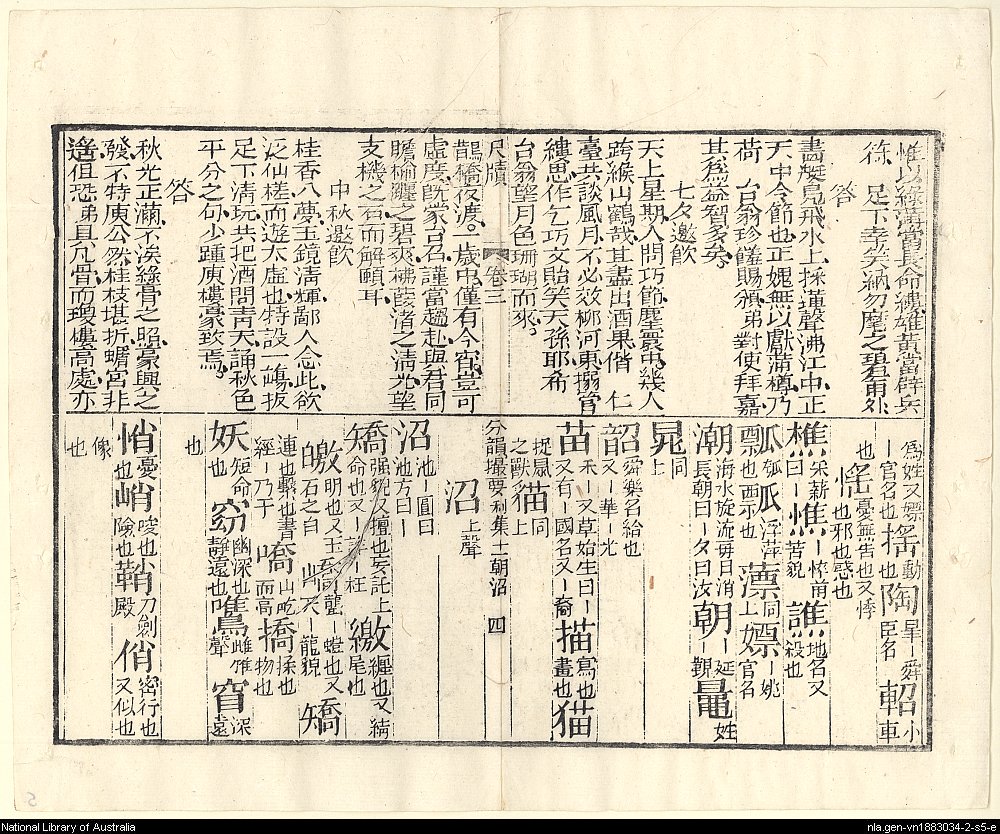 惟以綵溝當長命縷雄黃當辟兵
符 足下幸矣納勿麾之碧眚甭外
答
畫艇鳧飛水上採蓮聲沸江中正
天中令節也正媿無以獻蒲樽乃
荷 台翁珍饈賜頒弟對使拜嘉
其為益智多矣
七夕邀飲
天上星期人問巧節塵寰中幾人
跨緱山鶴哉其盡出酒果偕 仁
臺共談風月不必效柳河東搦管
縷思作乞巧文貽笑天孫耶希
台翁望月色珊瑚而來
尺牘 卷三
鵲橋夜渡歲中僅有今宵豈可
虛度旣蒙台名謹當趨赴與君同
瞻榆躔之碧爽拂葭渚之清光望
支機之石而解頤耳
中秋邀飲
桂香入夢玉鏡清輝鄙人念此欲
泛仙槎而遊太虛也特設一觴扳
足下清玩共把酒問青天誦秋色
平分之句少踵庾樓豪致焉
答
秋光正滿不涘綠骨之照豪興之
發不特庾公然桂枝堪折蟾宮非
遙但恐弟具凡骨而瓊樓高處亦
為姓又嫖 搖動也 陶臯丨舜臣名 軺小車
丨官名也
也 愮憂無告也又悸也邪也惑也
樵采薪丨曰丨 憔丨悴苦貌 譙丨地名又丨殺也
瓢瓠丨 瓟浮萍 薸同上 嫖丨姚官名
潮海水旋流毋日消長朝曰丨夕曰汐 朝丨延丨覲 鼂姓
晁同上
韶舜樂名紹也又丨華丨光
苗禾丨又草始生曰丨又有丨國名又丨裔 描寫也畫也 猫
捉鼠之獸 猫同上
分韻撮要利集十一朝沼 四
沼上聲
沼池丨圓曰池方曰丨
矯强貌又擅也妄託上命也又丨詐丨枉 繳纏也又綪尾也
皦明也又玉石之白
連也繫也書經丨乃干 嘵山屹而高 撟揉也物也
妖短命也 窈幽深也靜遠也 鷕雌雉聲 窅深遠
也
悄憂也 峭峻也險也 鞘刀劍殿 俏密行也又似也
像也
National Library of Australia
nla.gen-vn1883034-2-s5-e